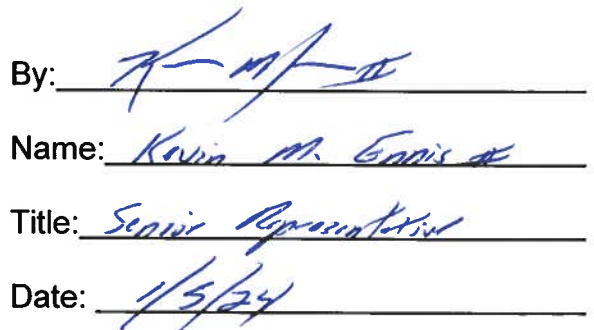 By: K M II
Name: Kevin M. Ennis II
Title: Senior Representative
Date: 1/5/24